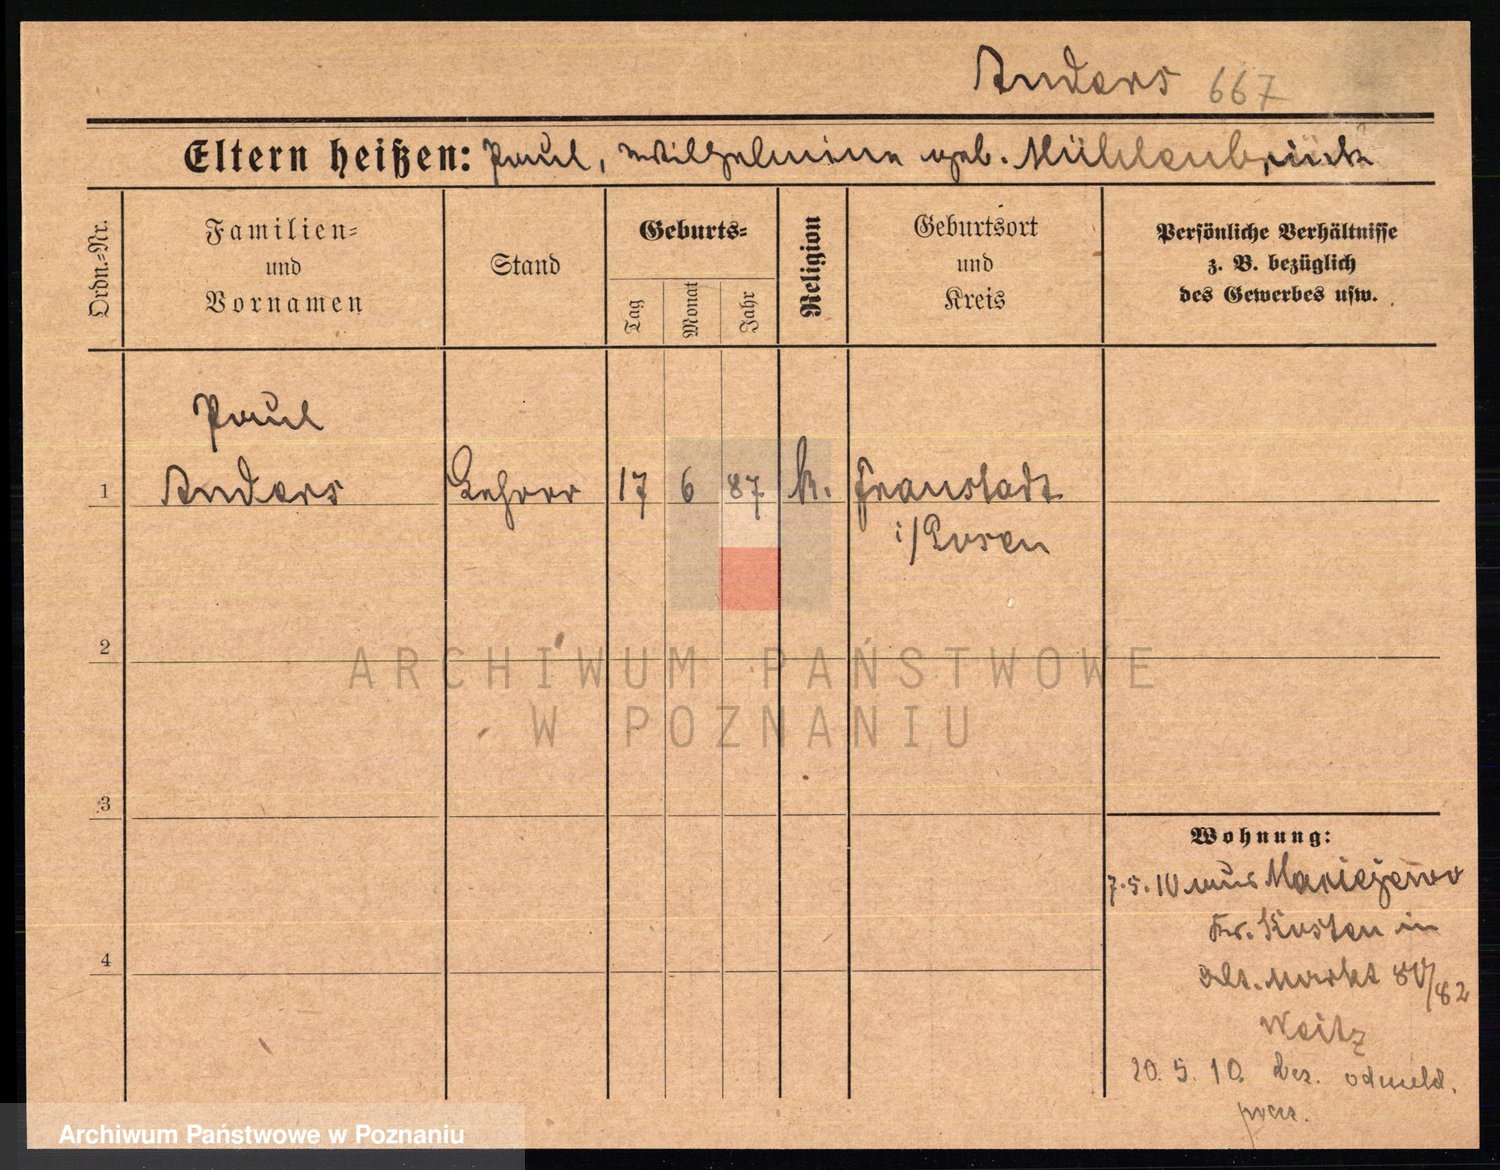 Anders 667
Eltern heißen: Paul, Wilhelmine geb. Mühlenbrück
Ordn.-Nr.
Familien-
und
Vornamen
Stand
Geburts-
Tag
Monat
Jahr
Religion
Geburtsort
und
Kreis
Persönliche Verhältnisse
z. B. bezüglich
des Gewerbes usw.
Paul
1 Anders Lehrer 17 6 87 k. Fraustadt
i/Posen
2
ARCHIWUM PAŃSTWOWE
W POZNANIU
3
Wohnung:
7.5.10 aus
Kr. Kosten in
Alt. Markt 80/82
Weitz
4
20. 5. 10.
Archiwum Państwowe w Poznaniu